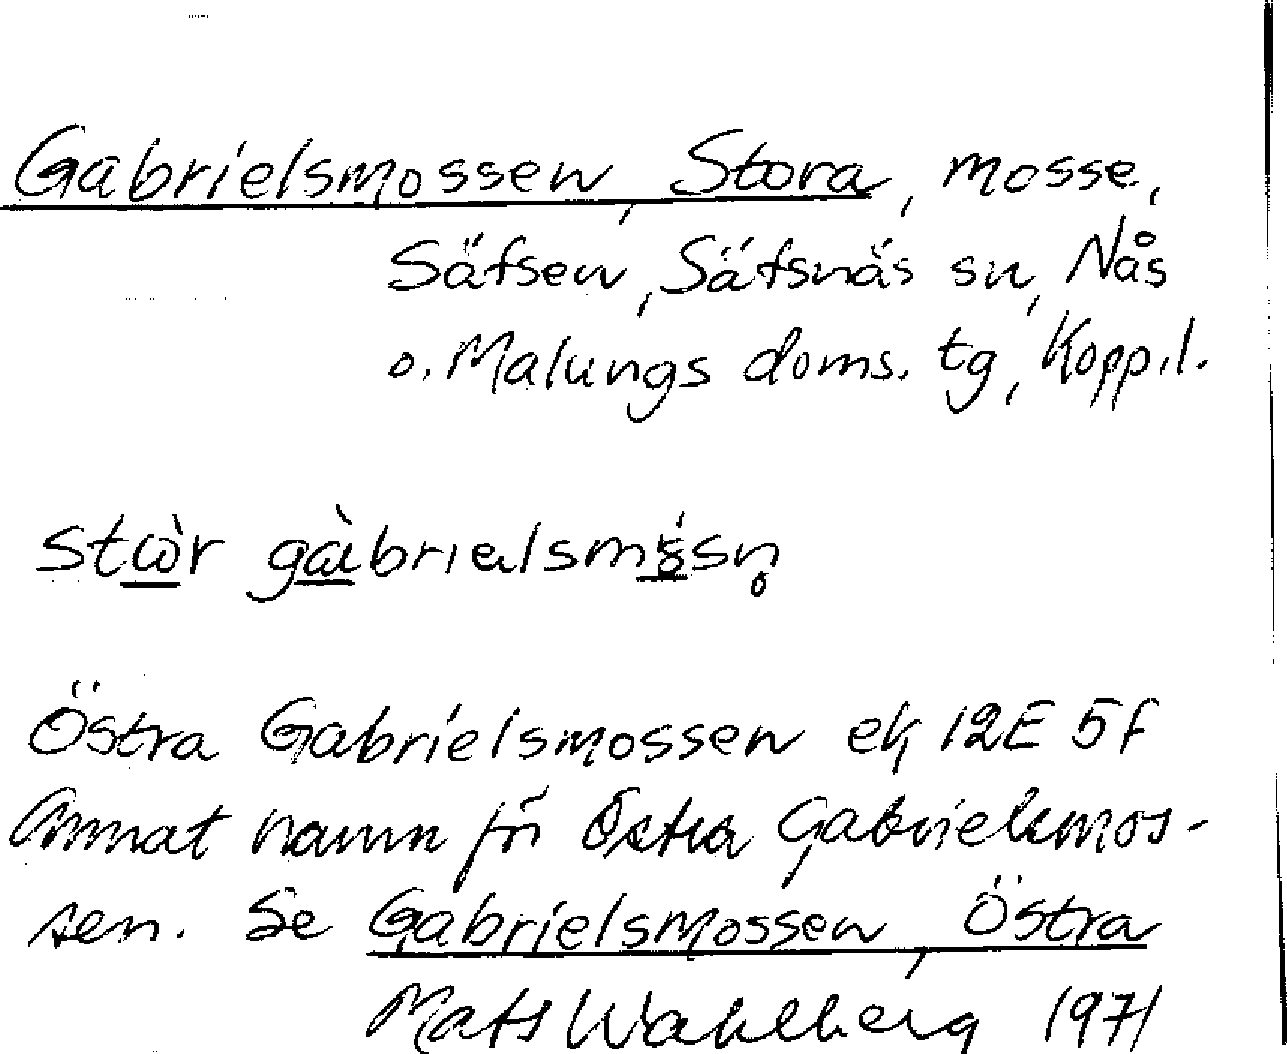 Gabrielsmossen, Stora, mosse,
Säfsen, Säfsnäs sn, Nås
o. Malungs doms. tg, Kopp.l.
stɯ̀r gàbriɐlsmósn̥
Östra Gabrielsmossen ek 12E 5f
Annat namn för Östra Gabrielsmos-
sen. Se Gabrielsmossen, Östra
Mats Wahlberg 1971